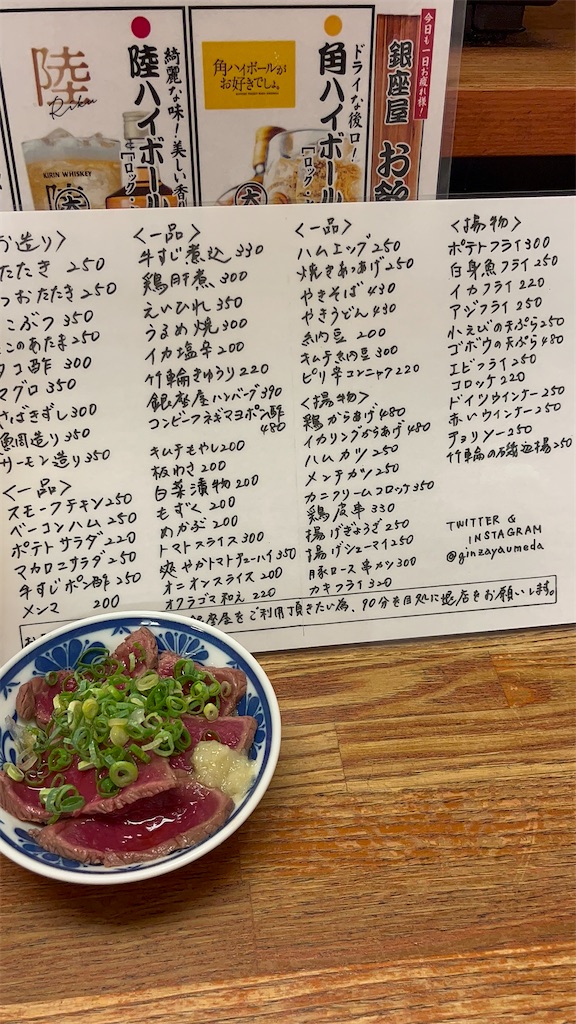 陸
Riku
KIRIN WHISKEY
陸ハイボール
[ロック・
綺麗な味!美しい香
角ハイボールが
お好きでしょ。
角ハイボール
[ロック・
ドライな後口!
銀座屋
今日も一日お疲れ様!
造り〉
たたき 250
つおたたき 250
こぶつ 350
このあたま 250
タコ酢 300
マグロ 350
さばきずし 300
サーモン造り 350
〈一品〉
スモークチキン 250
ベーコンハム 250
ポテトサラダ 220
マカロニサラダ 250
牛すじポン酢 250
メンマ 200
〈一品〉
牛すじ煮込 330
鶏肝煮 300
えいひれ 350
うるめ焼 300
イカ塩辛 200
竹輪きゅうり 220
銀座屋ハンバーグ 390
コンビーフネギマヨポン酢 480
キムチもやし 200
板わさ 200
白菜漬物 200
もずく 200
めかぶ 200
トマトスライス 300
爽やかトマトチューハイ 350
オニオンスライス 200
オクラゴマ和え 220
〈一品〉
ハムエッグ 250
焼きあつあげ 250
やきそば 430
やきうどん 430
納豆 200
キムチ納豆 300
ピリ辛コンニャク 220
〈揚物〉
鶏からあげ 480
イカリングからあげ 480
ハムカツ 250
メンチカツ 250
カニクリームコロッケ 350
鶏皮串 330
揚げぎょうざ 250
揚げシューマイ 250
豚ロース串カツ 300
カキフライ 320
〈揚物〉
ポテトフライ 300
白身魚フライ 250
イカフライ 220
アジフライ 250
小えびの天ぷら 250
ゴボウの天ぷら 480
エビフライ 250
コロッケ 220
ドイツウインナー 250
赤いウインナー 250
チョリソー 250
竹輪の磯辺揚 250
TWITTER &
INSTAGRAM
@ginzayaumeda
銀座屋をご利用頂きたい為、90分を目処に退店をお願いします。